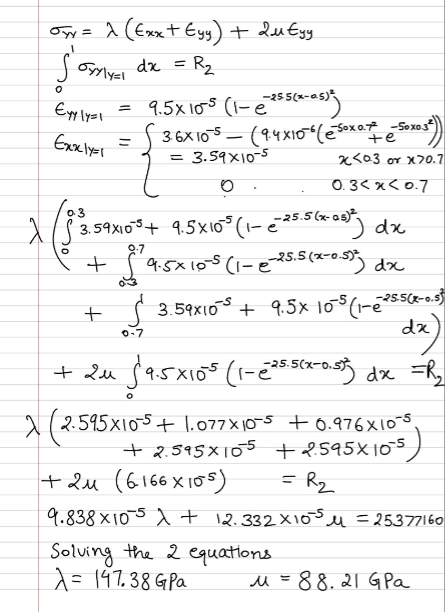 σyy = λ (Exx + Eyy) + 2μ Eyy
∫₀¹ σyy|y=1 dx = R₂
Eyy|y=1 = 9.5×10⁻⁵ (1-e^-25.5(x-0.5)²)
Exx|y=1 = { 3.6×10⁻⁵ - (9.4×10⁻⁶(e^-50×0.7² + e^-50×0.3²))
= 3.59×10⁻⁵ x<0.3 or x>0.7
0 . 0.3<x<0.7
λ ( ∫₀^0.3 3.59×10⁻⁵ + 9.5×10⁻⁵ (1-e^-25.5(x-0.5)²) dx
+ ∫0.3^0.7 9.5×10⁻⁵ (1-e^-25.5(x-0.5)²) dx
+ ∫0.7^1 3.59×10⁻⁵ + 9.5×10⁻⁵ (1-e^-25.5(x-0.5)²
dx)
+ 2μ ∫₀¹ 9.5×10⁻⁵ (1-e^-25.5(x-0.5)²) dx = R₂
λ (2.595×10⁻⁵ + 1.077×10⁻⁵ + 0.976×10⁻⁵
+ 2.595×10⁻⁵ + 2.595×10⁻⁵)
+ 2μ (6.166×10⁻⁵) = R₂
9.838×10⁻⁵ λ + 12.332×10⁻⁵ μ = 25377160
Solving the 2 equations
λ = 147.38 GPa μ = 88.21 GPa